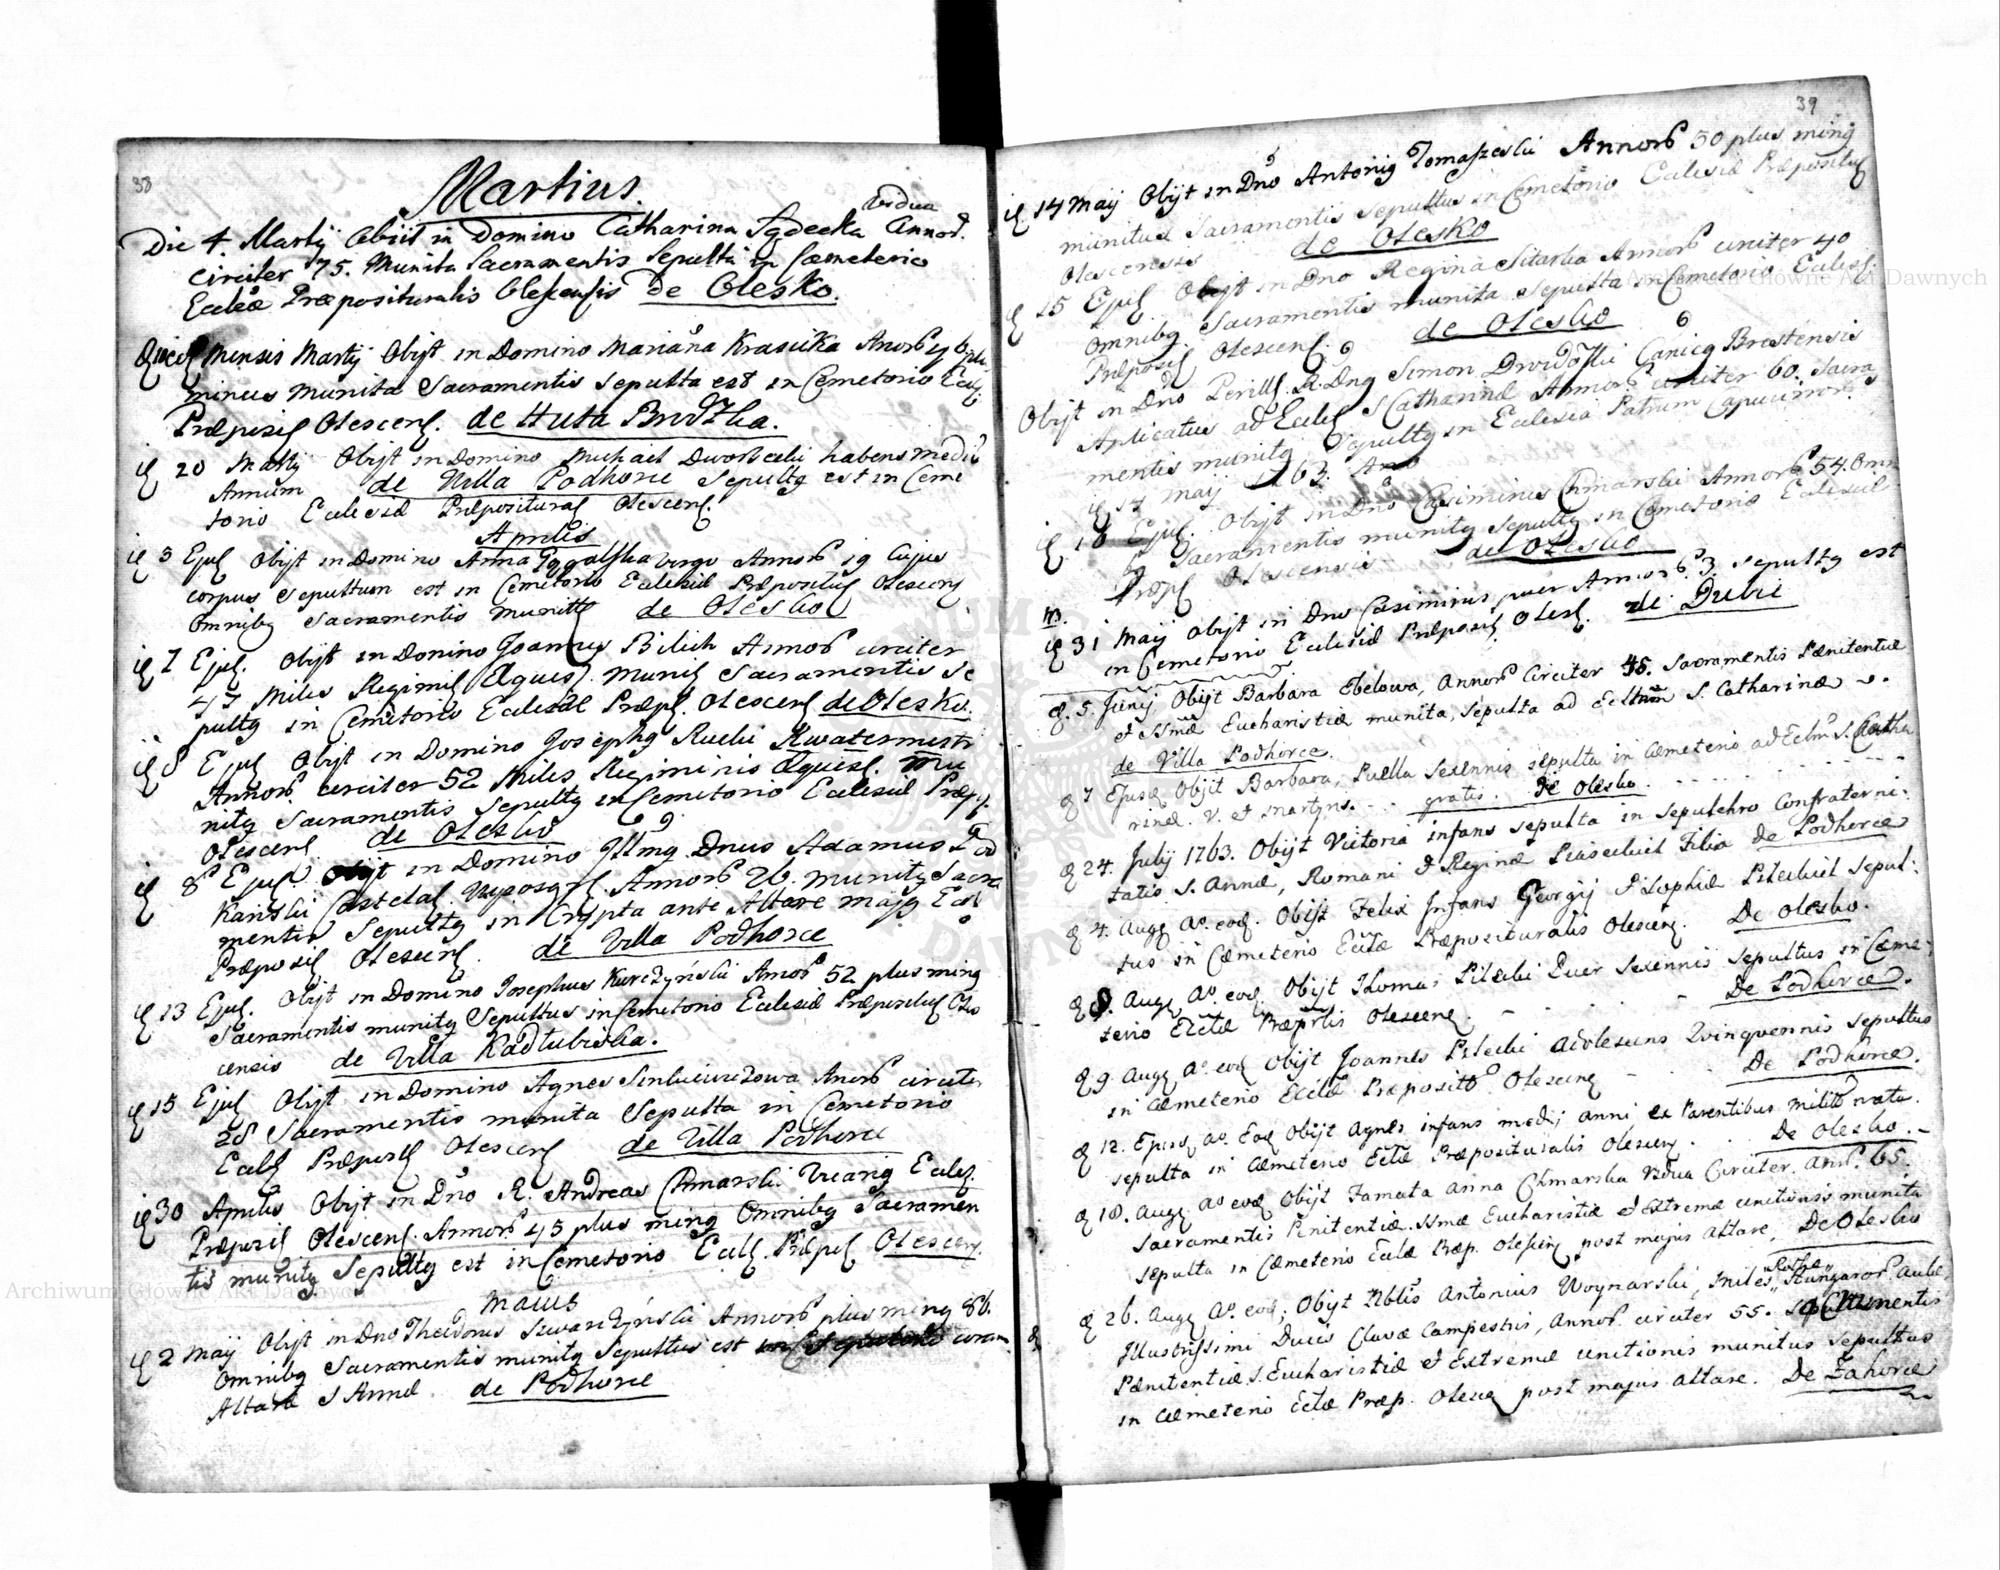 38
Martius.
Vidua
Die 4 Martij Obiit in Domino Catharina Sądecka Annor.
circiter 75. Munita Sacramentis Sepulta in Caemeterio
Eccleæ Præposituralis Olescensis De Olesko.
Mensis Martij Obijt in Domino Marianna Krasicka Anorū
minus munita Sacramentis sepulta est in Cemetorio Eccl
Præposił Olescenſ. de Huta Brodzka.
20 Martij Obijt in Domino Michael Dworſcuki habens mediū
Annum de Villa Podhorce Sepultq est in Ceme
torio Ecclesiæ Præposituraſ Olescenſ.
Aprilis
3 Ejuſ Obijt in Domino Anna virgo Annorū 19 Cujus
corpus sepultum est in Cemetorio Ecclesiæ Præpositłiſ Olescenſ
Omnibq Sacramentis munitū de Olesko
7 Ejuſ. Obijt in Domino Joannes Bilich Annorū circiter
47 Miles Regimiſ Equesſ. Muniſ Sacramentis Se
pultq in Cemetorio Ecclesiæ Præpſ. Olescenſ de Olesko.
8 Ejuſ Obijt in Domino Josephq Rucki Kwatermistr
Annorū circiter 52 Miles Regiminis Equesſ. Mu
nitq Sacramentis Sepultq in Cemetorio Ecclesiæ Præpſ.
Olescenſ de Olesko
8 Ejuſ Obijt in Domino Illmq Dnus Adamus Pod
kański Castelaſ Wyszogſ Annorū 26 munitq Sacra
mentis Sepultq in Crypta ante Altare majq Eccl
Præposiſ Olescenſ. de Villa Podhorce
13 Ejuſ. Obijt in Domino Josephus Kurczyński Anorū 52 plus minq
Sacramentis munitq Sepultus in Cemetorio Ecclesiæ Præpositłiſ Oles
censis de Villa Kadłubiska.
15 Ejuſ Obijt in Domino Agnes Anorū circiter
28 Sacramentis munita Sepulta in Cemetorio
Ecclſ Præposſ Olescenſ de Villa Podhorce
30 Aprilis Obijt in Dño R. Andreas Chmarski Vicariq Eccleſ.
Præposiſ Olescenſ. Annorū 45 plus minq Omnibq Sacramen
tis munitq Sepultq est in Cemetorio Ecclſ. Præpſ Olescenſ.
Maius
2 Maij Obijt in Dno Theodorus Szwarczyński Annorū plus minq 86.
Omnibq Sacramentis munitq Sepultus est coram
Altare S Annæ de Podhorce
39
14 Maij Obijt in Dnō Antonijq Tomaszeski Annorū 50 plus minq
munitus Sacramentis sepultus in Cemetorio Ecclesiæ Præpositłiſ
Olescensis de Olesko
15 Ejuſ Obijt in Dno Regina Sitarka Annorū circiter 40
Omnibq Sacramentis munita sepulta in Cemetorio Ecclesſ.
Præposiſ Olescenſ. de Olesko
Obijt in Dno Perillſ. R. Dnq Simon Canicq Brestensis
Aplicatus ad Ecclſ S Catharinæ Annorū circiter 60. Sacra
mentis munitq Sepultq in Ecclesia Patrum Capucinorū
14 Maij 1763. Ano
18 Ejuſ. Obijt in Dno Casimirus Chmarski Annorū 54. Omni
bq Sacramentis munitq sepultq in Cemetorio Ecclesiæ
Præpſ Olescensis de Olesko
31 Maij Obijt in Dno Casimirus puer Annorū 3 sepultq est
in Cemetorio Ecclesiæ Præposiſ Olesſ. de Dubie
5. Junij Obijt Barbara Ebelowa, Annorū Circiter 45. Sacramentis Pænitentiæ
et SSmæ Eucharistiæ munita, sepulta ad Ecclm S. Catharinæ v.
de Villa Podhorce.
7 Ejusq Obijt Barbara, Puella Sexennis sepulta in Cæmeterio ad Eclm S. Catha
rinæ. V. et Martyris. - - gratis. De Olesko.
24. Julij 1763. Obijt Victoria infans sepulta in sepulchro Confraterni-
tatis S. Annæ, Romani et Reginæ Filia De Podhorce
4. Augq Aº. eoq. Obijt Felix Infans Georgij et Sophiæ Pilecki Sepul-
tus in Cæmeterio Ecclæ Præposituralis Olescenſ. De Olesko.
8. Augq Aº. eoq. Obijt Thomas Pilecki Puer Sexennis sepultus in Cæme-
terio Ecclæ Præprlis Olescenſ. - - - De Podhorce.
9. Augq Aº. eoq Obijt Joannes Pilecki adolescens Quinquennis sepultus
in Cæmeterio Ecclæ Præpositłi Olescenſ - - De Podhorce.
12. Ejusq aº. Eoq Obijt Agnes infans medij anni ex Parentibus militū nata.
sepulta in Cæmeterio Ecclæ Præposituralis Olescenſ. . . De Olesko. -
18. Augq aº eoq Obijt Famata Anna Chmarska Vidua Circiter. Anū. 65.
Sacramentis Pænitentiæ. SSmæ Eucharistiæ et Extremæ unctionis munita
sepulta in Cæmeterio Ecclæ Præp. Olescenſ post majus altare, De Olesko
26. Augq Aº. eoq, Obijt Nblis Antonius Woynarski, Miles Hungarorū Aulæ
Illustrissimi Ducis Clavæ Campestris, Annorū. circiter 55. Sacramentis
Pænitentiæ S. Eucharistiæ et Extremæ unctionis munitus sepultus
in Cæmeterio Ecclæ Præp. Olescſ post majus altare. De Zahorce
Archiwum Główne Akt Dawnych
Archiwum Główne Akt Dawnych